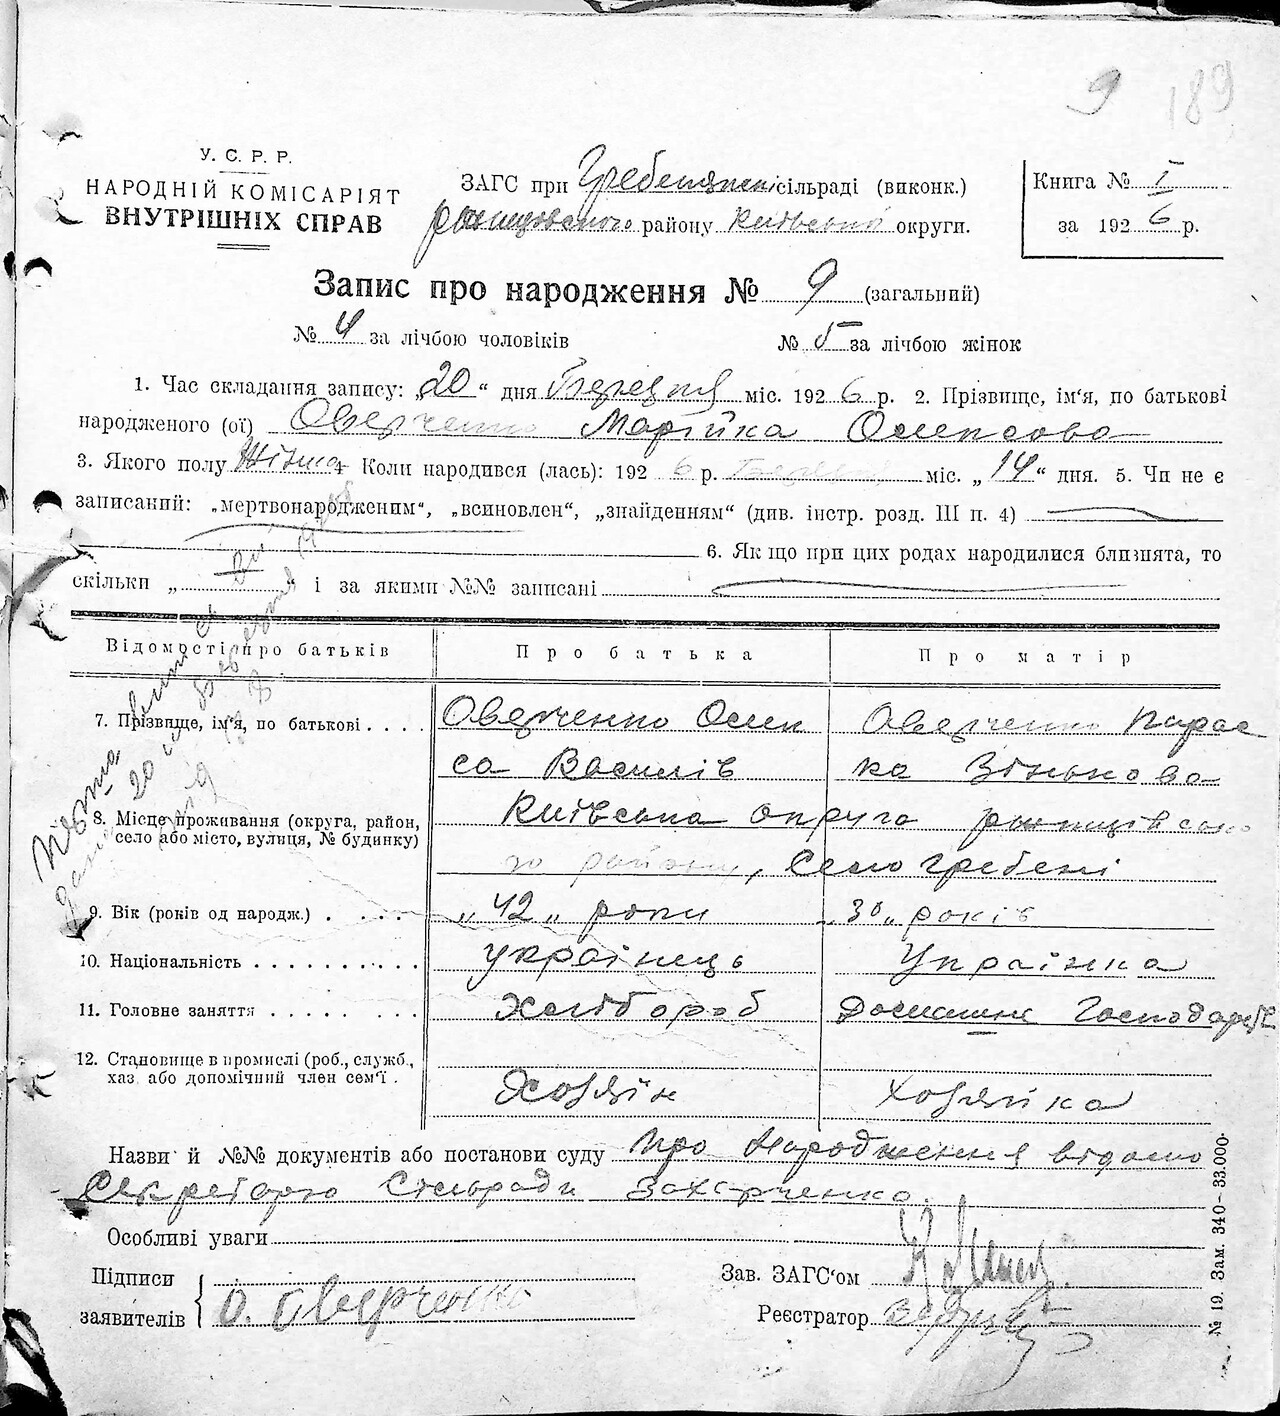 9 189
У. С. Р. Р.
НАРОДНІЙ КОМІСАРІЯТ
ВНУТРІШНІХ СПРАВ
ЗАГС при сільраді (виконк.)
району округи.
Книга № I
за 1926 р.
Запис про народження № 9 (загальний)
№ 4 за лічбою чоловіків № 5 за лічбою жінок
1. Час складання запису: „20“ дня Березня міс. 1926 р. 2. Прізвище, ім'я, по батькові
народженого (ої) Оверченко Марійка Олексова
3. Якого полу Жіноч 4. Коли народився (лась): 1926 р. Березня міс. „14“ дня. 5. Чи не є
записаний: „мертвонародженим“, „всиновлен“, „знайденням“ (див. інстр. розд. III п. 4)
6. Як що при цих родах народилися близнята, то
скільки „ і за якими №№ записані
Відомості про батьків Про батька Про матір
7. Прізвище, ім'я, по батькові . . . . Оверченко Олек Оверченко Парас
са Василів ка Зінькова
8. Місце проживання (округа, район, Київська округа
село або місто, вулиця, № будинку) го району, Село Гребені
9. Вік (років од народж.) . . . . „42„ роки „30„ років
10. Національність . . . . . . . . . . українець Українка
11. Головне заняття . . . . . . . . Хлібороб Домашнє Господарств
12. Становище в промислі (роб., служб.,
хаз. або допомічний член сем'ї . Хозяїн Хозяйка
Назви й №№ документів або постанови суду Про Народження відомо
Секретарю Сільради Захарченко
Особливі уваги
Підписи
заявителів О. Оверченко
Зав. ЗАГС'ом
Реєстратор
№ 19. Зам. 340–33.000.